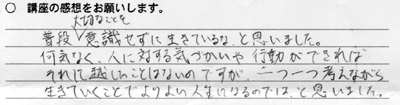 ○ 講座の感想をお願いします。
大切なことを
普段意識せずに生きているな、と思いました。
何気なく、人に対する気づかいや行動ができれば
それに越したことはないのですが、一つ一つ考えながら
生きていくことでよりよい人生になるのでは、と思いました。